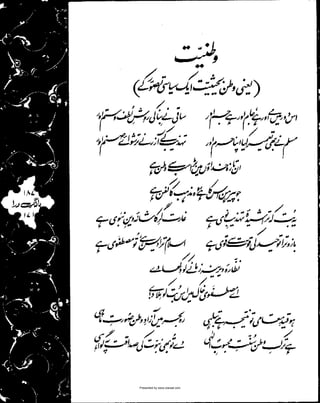 وطنیّت
(یعنی وطن بحیثیت ایک سیاسی تصور کے)
اس دور میں مے اور ہے، جام اور ہے، جم اور ساقی نے بنا کی روشِ لطف و ستم اور
مسلم نے بھی تعمیر کیا اپنا حرم اور تہذیب کے آزر نے ترشوائے صنم اور
ان تازہ خداؤں میں بڑا سب سے وطن ہے
جو پیرہن اس کا ہے، وہ مذہب کا کفن ہے
یہ بت کہ تراشیدۂ تہذیبِ نوی ہے غارت گرِ کاشانۂ دینِ نبوی ہے
بازو ترا توحید کی قوت سے قوی ہے اسلام ترا دیس ہے، تو مصطفوی ہے
نظارۂ دیرینہ زمانے کو دکھا دے
اے مصطفوی خاک میں اس بت کو ملا دے
ہو قیدِ مقامی تو نتیجہ ہے تباہی رہ بحر میں آزادِ وطن صورتِ ماہی
ہے ترکِ وطن سنتِ محبوبِ الٰہی دے تو بھی نبوت کی صداقت پہ گواہی
بانگِ درا